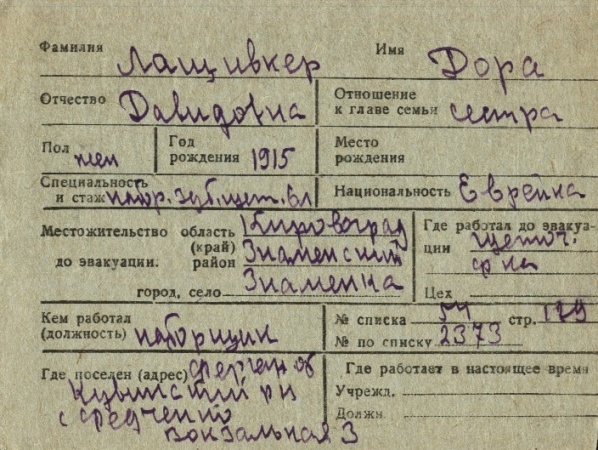 Фамилия Лащивкер Имя Дора
Отчество Давидовна Отношение к главе семьи сестра
Пол жен Год рождения 1915 Место рождения
Специальность и стаж набор. зуб. щет. 6л Национальность Еврейка
Местожительство область Кировоград
(край)
до эвакуации. район Знаменский
город, село Знаменка
Где работал до эвакуа-
ции щеточ.
ф-ка
Цех
Кем работал
(должность) наборщик
№ списка 54 стр. 179
№ по списку 2373
Где поселен (адрес) Ферган об
Кувинский рн
с
Вокзальная 3
Где работает в настоящее время
Учрежд.
Должн.